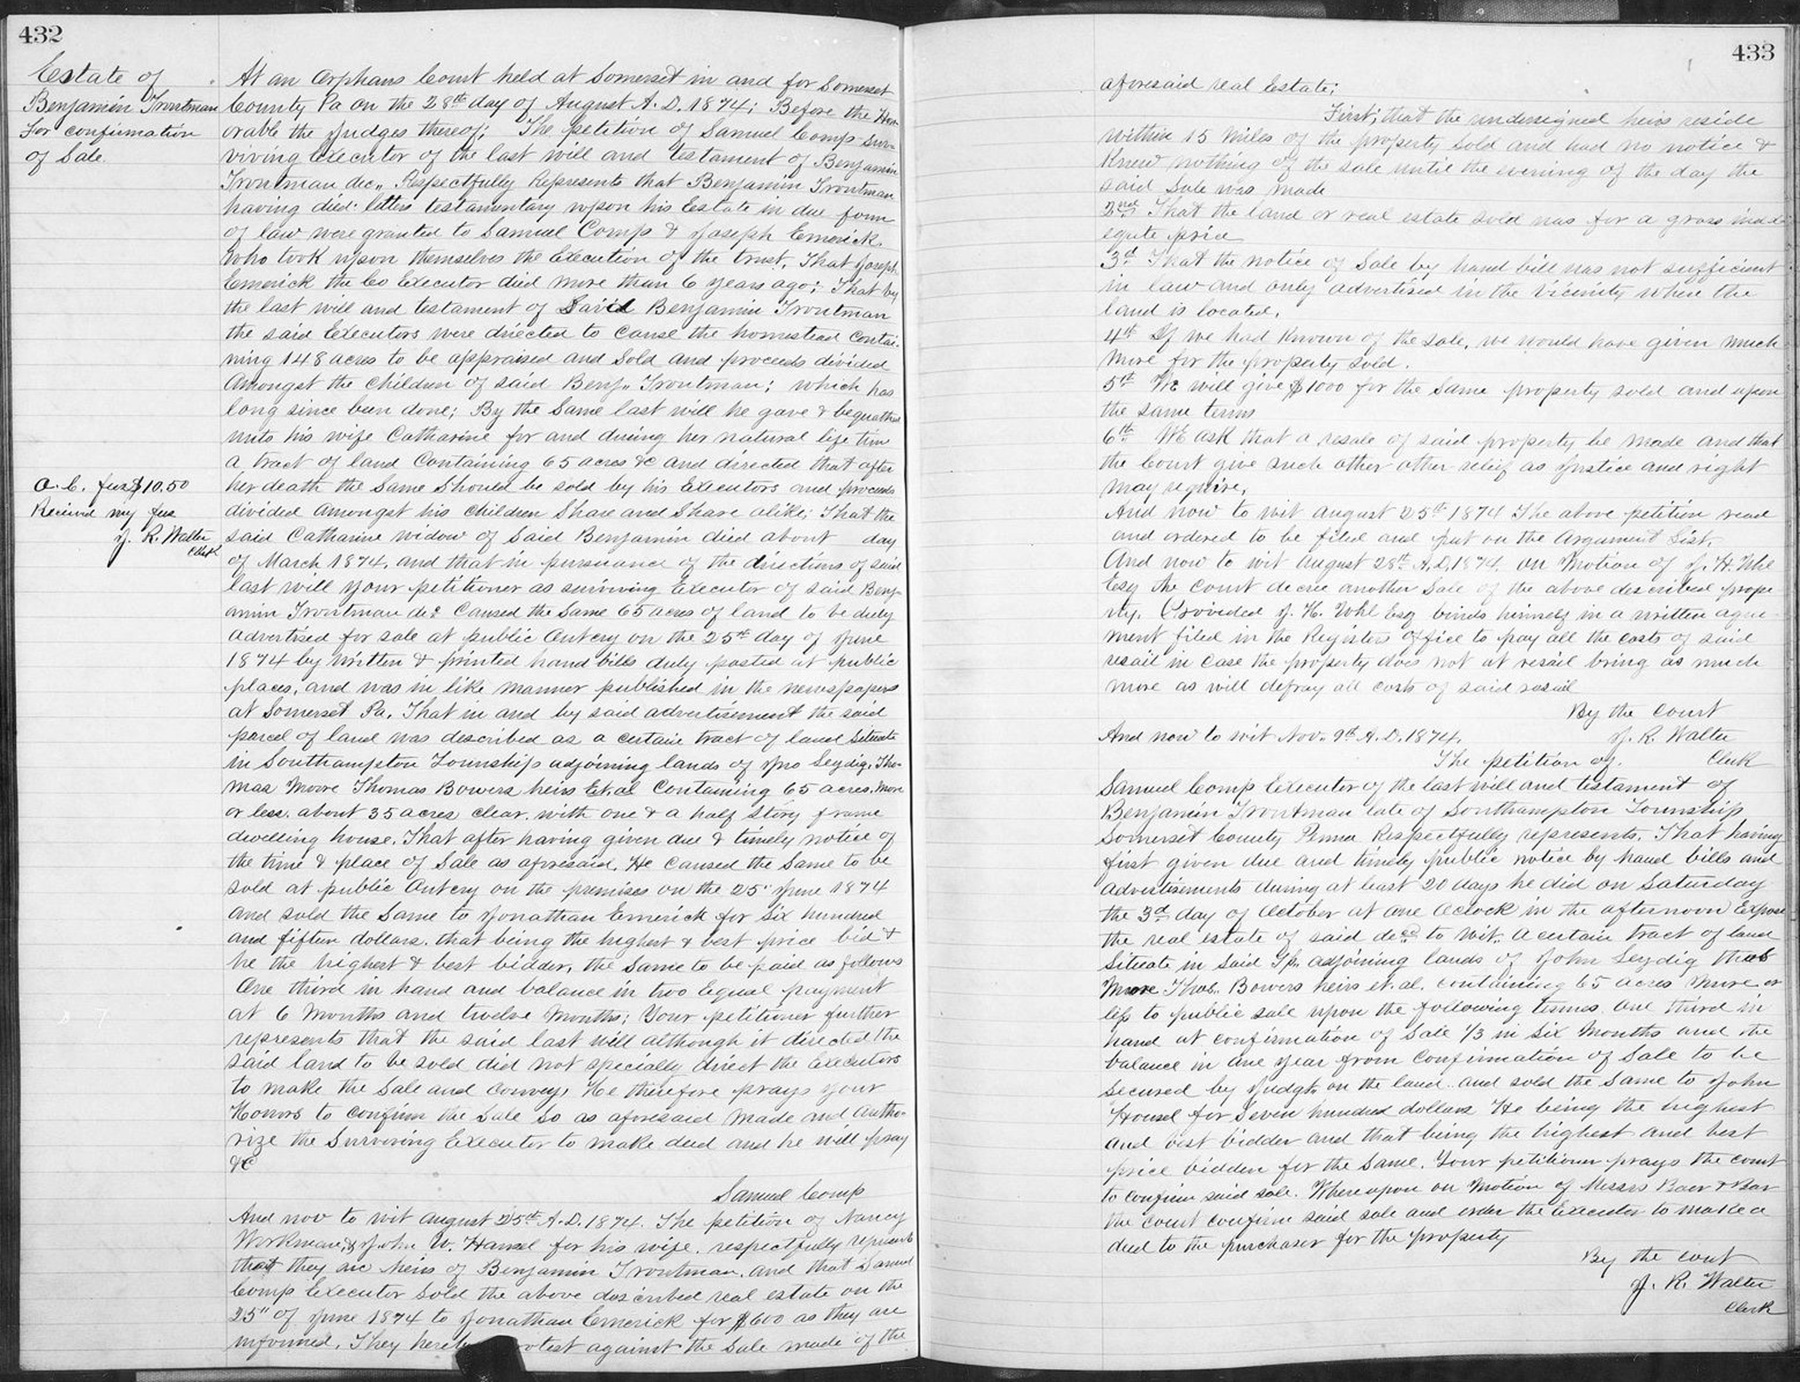 432
Estate of
Benjamin Troutman
For confirmation
of Sale.
At an Orphans Court held at Somerset in and for Somerset
County Pa on the 28th day of August A. D. 1874; Before the Hon-
orable the Judges thereof; The petition of Samuel Comp sur-
viving Executor of the last will and testament of Benjamin
Troutman dec,, Respectfully Represents that Benjamin Troutman
having died letters testamentary upon his Estate in due form
of law were granted to Samuel Comp & Joseph Emerick.
Who took upon themselves the Execution of the trust, That Joseph
Emerick the Co Executor died more than 6 years ago; That by
the last will and testament of Said Benjamin Troutman
the said Executors were directed to cause the homestead contai-
ning 148 acres to be appraised and Sold and proceeds divided
Amongst the children of said Benj,, Troutman; which has
long since been done; By the Same last will he gave & bequathed
unto his wife Catharine for and during her natural life time
a tract of land Containing 65 acres &c and directed that after
her death the Same Should be sold by his Executors and proceeds
divided amongst his children Share and Share alike; That the
said Catharine widow of Said Benjamin died about day
of March 1874, and that in pursuance of the directions of said
last will your petitioner as surviving Executor of said Benj-
amin Troutman decd Caused the Same 65 acres of land to be duly
advertised for sale at public Outcry on the 25th day of June
1874 by written & printed hand bills duly posted at public
places, and was in like manner published in the newspapers
at Somerset Pa. That in and by said advertisement the said
parcel of land was described as a certain tract of land Situate
in Southampton Township adjoining lands of Jno Leydig, Tho-
mas Moore Thomas Bowers heirs Et al Containing 65 acres, More
or less, about 35 acres clear, with one & a half Story frame
dwelling house. That after having given due & timely notice of
the time & place of Sale as aforesaid, He caused the Same to be
sold at public Outcry on the premises on the 25" June 1874
and sold the Same to Jonathan Emerick for Six hundred
and fifteen dollars. that being the highest & best price bid &
he the highest & best bidder, the Same to be paid as follows
One third in hand and balance in two Equal payment
at 6 Months and twelve Months; Your petitioner further
represents that the said last will although it directed the
said land to be sold did not specially direct the Executors
to make the Sale and convey, He therefore prays your
Honors to confirm the Sale so as aforesaid Made and Autho-
rize the Surviving Executor to make deed and he will pray
&c
Samuel Comp
O. C. fees $10.50
Received my fees
J. R. Walter
Clerk
And now to wit August 25th A. D. 1874. The petition of Nancy
Workman, & John W. Hansel for his wife. respectfully represents
that they are heirs of Benjamin Troutman. and that Samuel
Comp Executor Sold the above described real estate on the
25" of June 1874 to Jonathan Emerick for $600 as they are
informed. They against the Sale made of the
433
aforesaid real Estate;
First; that the undersigned heirs reside
within 15 Miles of the property Sold and had no notice &
Knew nothing of the sale until the evening of the day the
said Sale was made
2nd That the land or real estate sold was for a gross inad
equate price
3d That the notice of Sale by hand bill was not sufficient
in law and only advertised in the Vicinity where the
land is located.
4th If we had Known of the Sale, we would have given much
More for the property sold.
5th We will give $1000 for the Same property sold and upon
the same terms
6th We ask that a resale of said property be made and that
the Court give such other other relief as Justice and right
May require,
And now to wit August 25th 1874 The above petition read
and ordered to be filed and put on the Argument List.
And now to wit August 28th A,D,1874. on Motion of J. H. Uhl
Esq the Court decree another Sale of the above described prope
rty. Provided J. H. Uhl Esq binds himself in a written agree-
ment filed in the Registers office to pay all the costs of said
resail in Case the property does not at resail bring as much
more as will defray all costs of said resail
By the Court
J. R. Walter
Clerk
And now to wit Nov. 9th A. D. 1874.
The petition of
Samuel Comp Executor of the last will and testament of
Benjamin Troutman late of Southampton Township
Somerset County Penna Respectfully represents, That having
first given due and timely public notice by hand bills and
advertisements during at least 20 days he did on Saturday
the 3d day of October at One Oclock in the afternoon Expose
the real estate of said decd to wit. A certain tract of land
Situate in Said Tp. adjoining lands of John Leydig Thos
Moore Thos. Bowers heirs et. al. containing 65 acres More or
less to public sale upon the following terms. one third in
hand at confirmation of Sale 1/3 in Six Months and the
balance in one year from Confirmation of Sale to be
Secured by Judgt. on the land. and sold the Same to John
Housel for Seven hundred dollars He being the highest
and best bidder and that being the highest and best
price bidden for the Same. Your petitioner prays the Court
to confirm said sale. Whereupon on Motion of Messrs Baer & Baer
the court confirm said sale and order the Executor to make a
deed to the purchaser for the property
By the court
J. R. Walter
Clerk